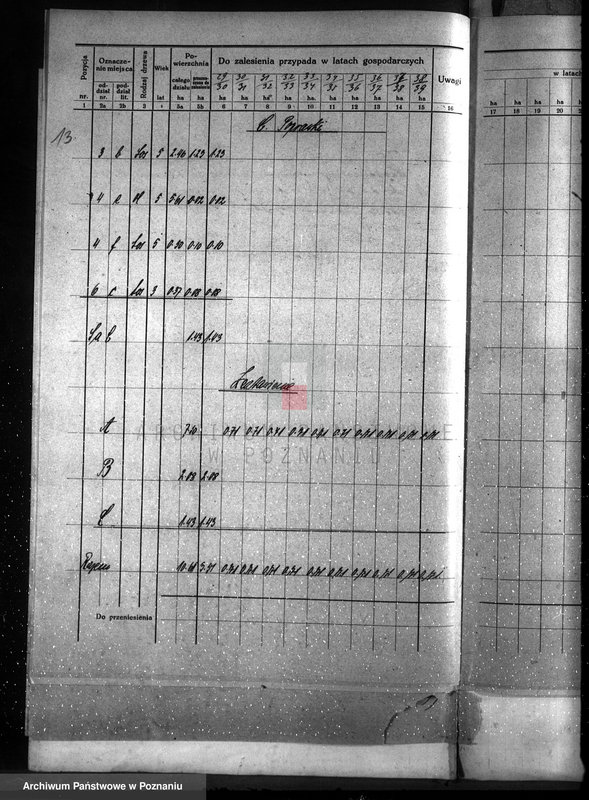 13
Pozycja Oznacze- nie miejsca Rodzaj drzewa Wiek Po- wierzchnia Do zalesienia przypada w latach gospodarczych Uwagi
w latach
29/30 30/31 31/32 32/33 33/34 34/35 35/36 36/37 38/39
nr. od- dział nr. pod- dział lit. lat całego działu ha ha ha ha ha ha ha ha ha ha ha ha
ha ha ha ha
1 2a 2b 3 4 5a 5b 6 7 8 9 10 11 12 13 14 15 16
17 18 19 20
C. Poprawki
3 b 5 2.46 1.23 1.23
4 5 0.02 0.02
4 f 5 0.30 0.10 0.10
6 c 3 0.37 0.08 0.08
Sa C 1.43 1.43
Zestawienie
A 7.10 0.71 0.71 0.71 0.71 0.71 0.71 0.71 0.71 0.71 0.71
B 2.08 2.08
C 1.43 1.43
Razem 0.71 0.71 0.71 0.71 0.71 0.71 0.71 0.71 0.71
Do przeniesienia
W POZNANIU
Archiwum Państwowe w Poznaniu